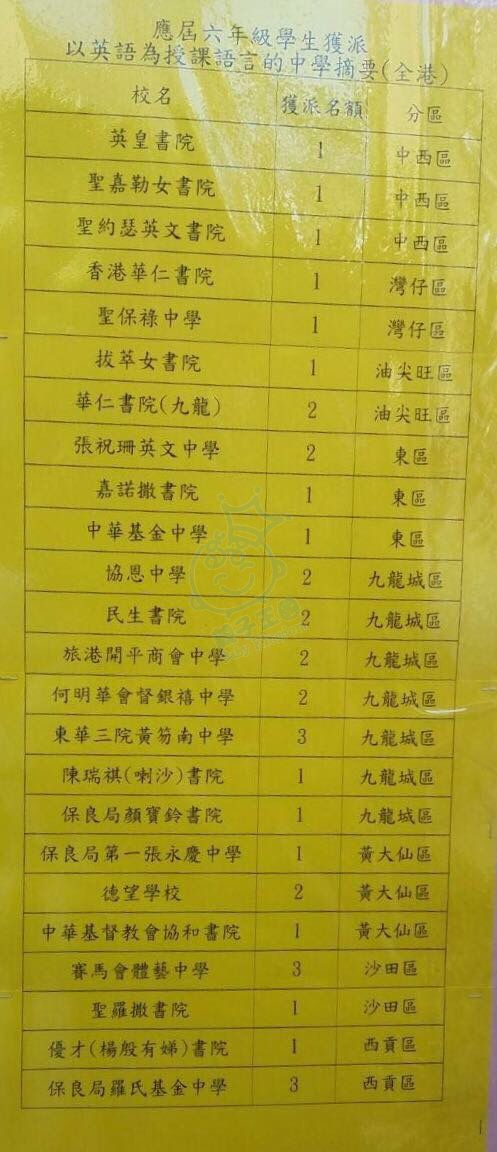 應屆六年級學生獲派
以英語為授課語言的中學摘要(全港)
校名 獲派名額 分區
英皇書院 1 中西區
聖嘉勒女書院 1 中西區
聖約瑟英文書院 1 中西區
香港華仁書院 1 灣仔區
聖保祿中學 1 灣仔區
拔萃女書院 1 油尖旺區
華仁書院(九龍) 2 油尖旺區
張祝珊英文中學 2 東區
嘉諾撒書院 1 東區
中華基金中學 1 東區
協恩中學 2 九龍城區
民生書院 2 九龍城區
旅港開平商會中學 2 九龍城區
何明華會督銀禧中學 2 九龍城區
東華三院黃笏南中學 3 九龍城區
陳瑞祺(喇沙)書院 1 九龍城區
保良局顏寶鈴書院 1 九龍城區
保良局第一張永慶中學 1 黃大仙區
德望學校 2 黃大仙區
中華基督教會協和書院 1 黃大仙區
賽馬會體藝中學 3 沙田區
聖羅撒書院 1 沙田區
優才(楊殷有娣)書院 1 西貢區
保良局羅氏基金中學 3 西貢區